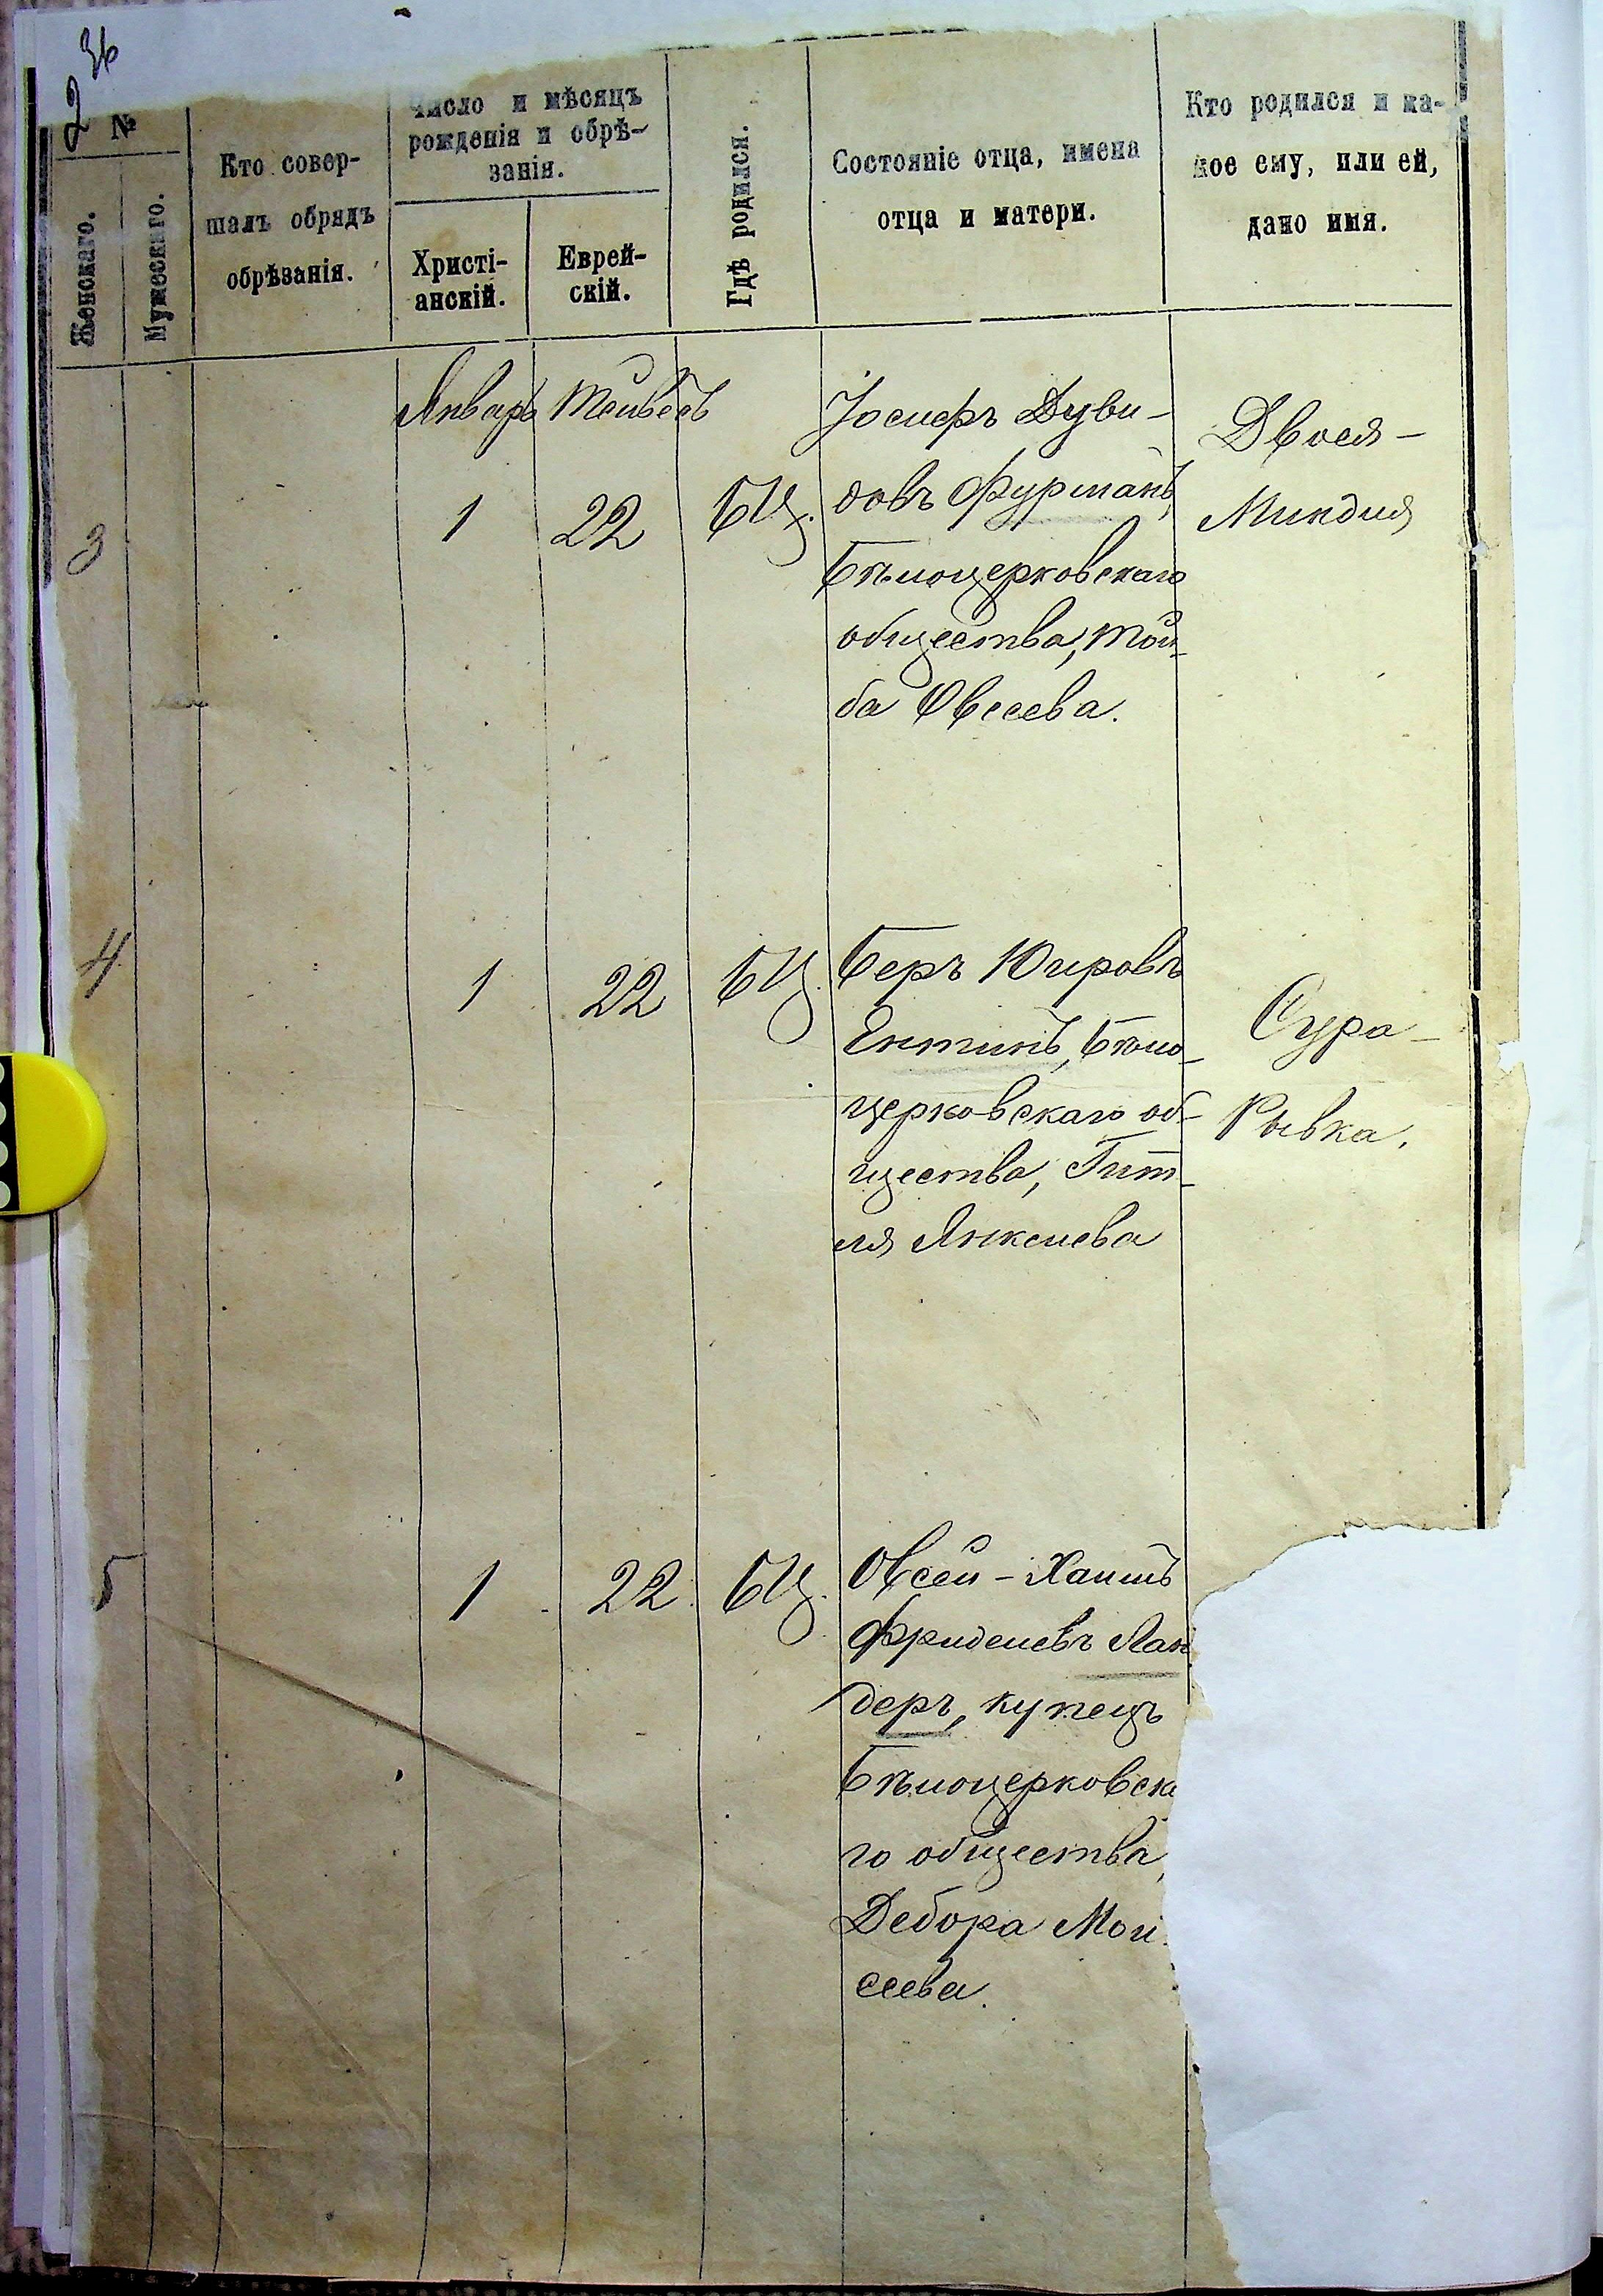 36
2
№
Женскаго.
Мужескаго.
Кто совер-
шалъ обрядъ
обрѣзанія.
Число и мѣсяцъ
рожденія и обрѣ-
занія.
Христі-
анскій.
Еврей-
скій.
Гдѣ родился.
Состояніе отца, имена
отца и матери.
Кто родился и ка-
кое ему, или ей,
дано имя.
Январь Тейвесъ
3
1
22
БЦ.
Іосифъ Дуви-
довъ Фурманъ,
Бѣлоцерковскаго
общества, Той-
ба Овсеева.
Двося-
Миндля
4
1
22
БЦ.
Беръ Юировъ
Ентинъ, Бѣло-
церковскаго об-
щества, Гит-
ля Янкелева
Сура-
Рывка.
5
1
22
БЦ.
Овсей-Хаимъ
Фриделевъ Лан
деръ, купецъ
Бѣлоцерковска
го общества,
Дебора Мои
сеева.